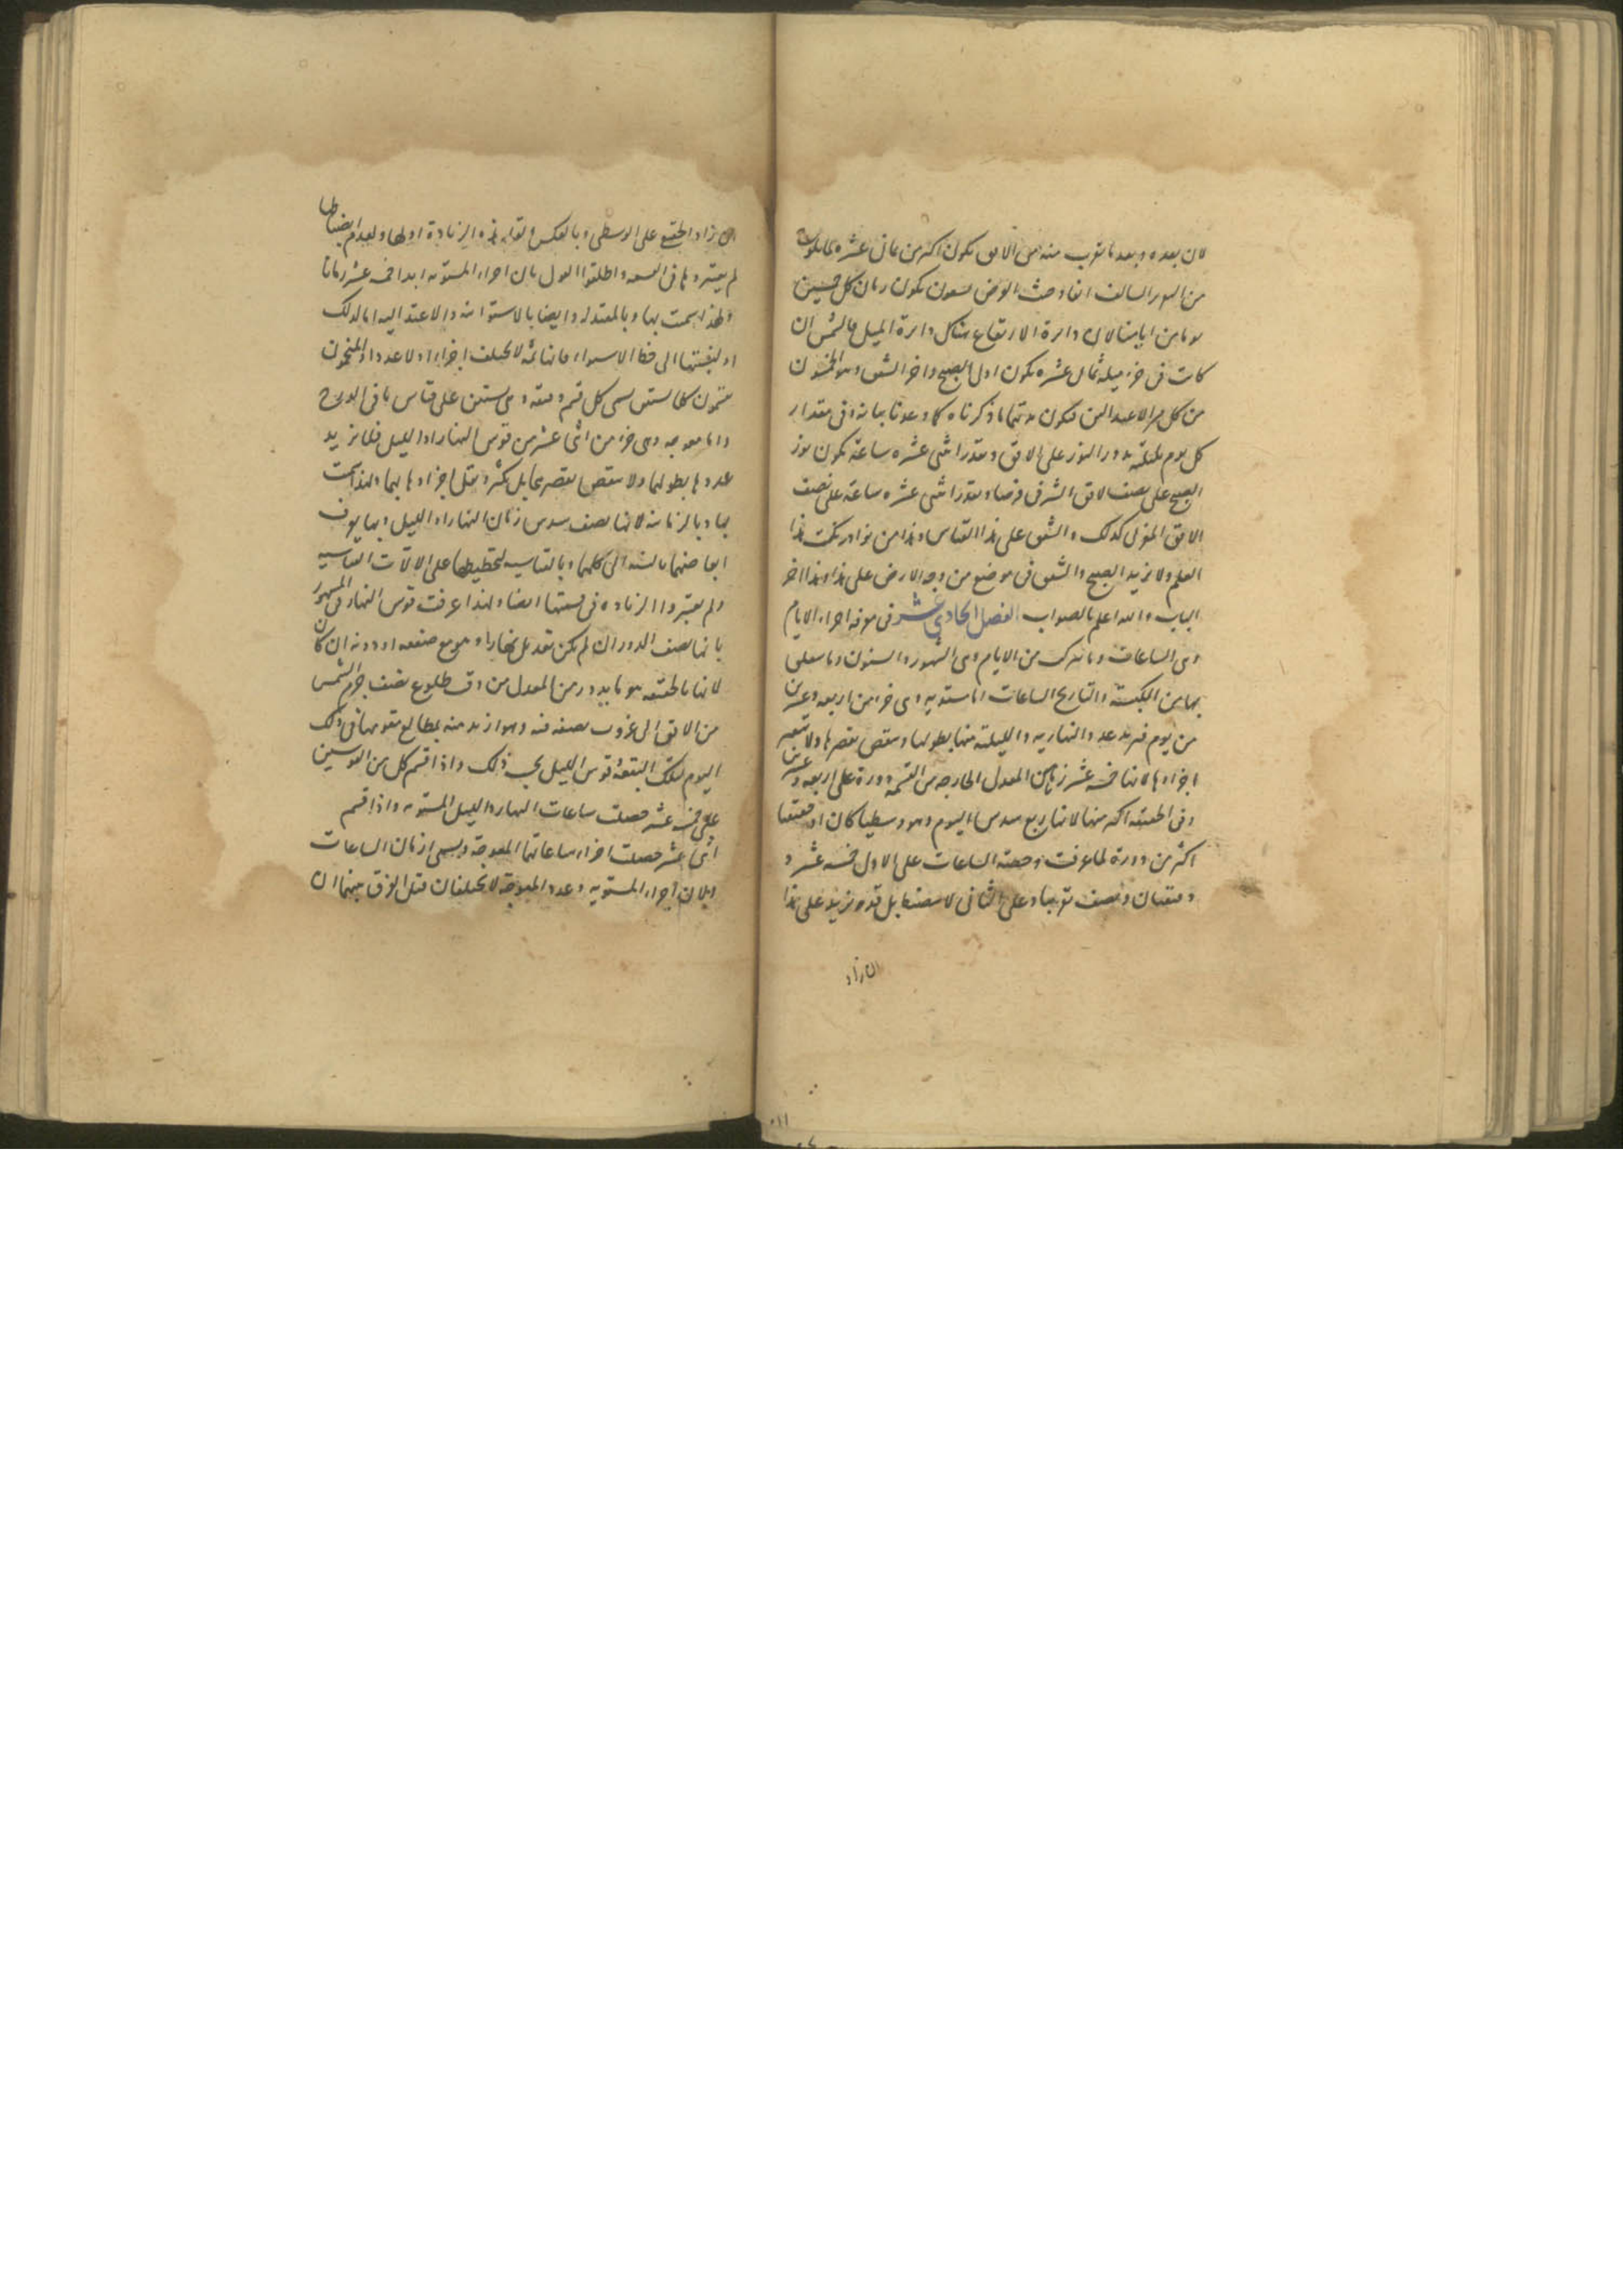 لان بعده وبعد ما يقرب منه من الافق يكون اكثر من ثمانى عشره
من السور السالف انفا وحيث العرض تسعون يكون زمان كل خمسين
يوما من ايامنا لان دائرة الارتفاع هناك دائرة الميل فالشمس ان
كانت فى جزء ميله ثمان عشره يكون اول الصبح واخر الشفق وهو الخمسون
من كل من الاعتدالين فيكون ما ذكرناه كما وعدنا بيانه وفى مقدار
كل يوم بليلته يدور النور على الافق وبقدر اثنى عشره ساعة يكون نور
الصبح على نصف الافق الشرقى فرضا وبقدر اثنى عشره ساعة على نصف
الافق الغربى كذلك والشفق على هذا القياس وهذا من نوادر نكت هذا
العلم ولا يزيد الصبح والشفق فى موضع من وجه الارض على هذا وهذا اخر
الباب والله اعلم بالصواب الفصل الحادي عشر فى معرفة اجزاء الايام
وهى الساعات وما يتركب من الايام وهى الشهور والسنون وما يتعلق
بها من الكبيسة والتاريخ الساعات اما مستويه وهى جزء من اربعه وعشرين
من يوم فيزيد عدد النهاريه والليلية منها بطولها وينقص بقصرها ولا يتغير
اجزاوها لانها خمسة عشر زمانا من المعدل الخارجه من القسمة دورة على اربعه وعشرين
وفى الحقيقه اكثر منها لانها ربع سدس اليوم وهو وسطيا كان او حقيقيا
اكثر من دورة لما عرفت وحصة الساعات على الاول خمسه عشر و
دقيقتان ونصف تقريبا وعلى الثانى لا ينضبط بل قد يزيد على هذا
ان زاد
ان زاد الحقيقى على الوسطى وبالعكس ولقلة هذه الزيادة اولها ولعدم انضباطها
لم يعتبروها فى القسمة واطلقوا القول بان اجزاء المستويه ابدا خمسة عشر زمانا
ولهذا سميت بها وبالمعتدله وايضا بالاستوائيه والاعتداليه اما لذلك
او لنسبتها الى خط الاستواء فانها ثمه لا يختلف اجزاء ولا عددا والمنجمون
يقسمون كلا بستين يسمى كل قسم دقيقه وهى بستين على قياس ما فى البروج
واما معوجه وهى جزء من اثنى عشر من قوس النهار او الليل فلا يزيد
عددها بطولهما ولا ينقص بقصرهما بل يكثر ويقل اجزاوها بهما ولهذا سميت
بها وبالزمانيه لانها نصف سدس زمان النهار او الليل وبها يعرف
ابعاضهما بالنسبة الى كلهما وبالقياسيه لتخطيطها على الالات القياسيه
ولم يعتبروا الزياده فى قسمتها ايضا ولهذا عرفت قوس النهار فى المشهور
بانها نصف الدور ان لم يكن تعديل نهار او هو مع ضعفه او دونه ان كان
لانها بالحقيقه هو ما يدور من المعدل من وقت طلوع نصف جرم الشمس
من الافق الى غروب نصفه فيه وهو ازيد منه بمطالع تقويمها فى ذلك
اليوم لتلك البقعة وقوس الليل بحسب ذلك واذا قسم كل من القوسين
على خمسة عشر حصلت ساعات النهار والليل المستويه واذا قسم
اثنى عشر حصلت اجزاء ساعاتها المعوجة ويسمى ازمان الساعات
ولان اجزاء المستويه وعدد المعوجة لا يختلفان قيل الفرق بينهما ان